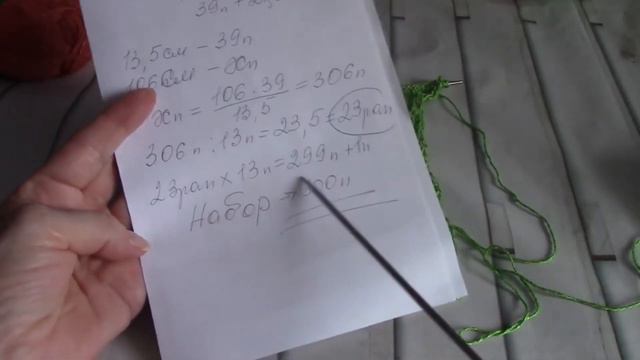 39п +
13,5см – 39п
106см – Хп
Хп = 106 · 39 / 13,5 = 306п
306п : 13п = 23,5 = 23рап
23рап х 13п = 299п + 1п
Набор → 300п